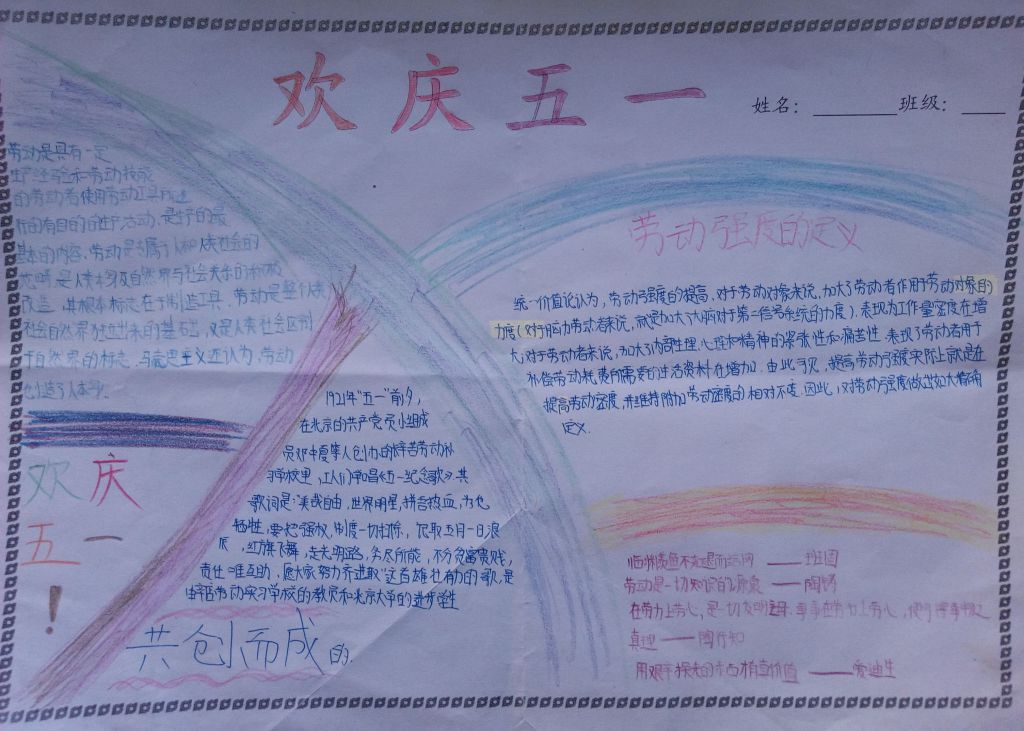 欢庆五一
姓名： 班级：
劳动是具有一定
生产经验和劳动技能
的劳动者使用劳动工具所进
行的有目的的生产活动，是生产的最
基本的内容。劳动是专属于人和人类社会的
范畴，是人类本身及自然界与社会关系的积极
改造，其根本标志在于制造工具。劳动是整个人类
社会自然界独立出来的基础，又是人类社会区别
于自然界的标志。马克思主义还认为，劳动
也创造了人本身。
欢庆
五一
！
1921年"五一"前夕，
在北京的共产党员小组成
员邓中夏等人创办的长辛苦劳动补
习学校里，工人们常唱《五一纪念歌》。其
歌词是："美哉自由，世界明星，拼吾热血，为他
牺牲，要把强权，制度一切扫除，记取五月一日良
辰，红旗飞舞，走光明路，各尽所能，不分贫富贵贱，
责任唯互助，愿大家努力齐进取"这首雄壮有力的歌，是
由长辛店劳动实习学校的教员和北京大学的进步学生
共创而成的
劳动强度的定义
统一价值论认为，劳动强度的提高，对于劳动对象来说，加大了劳动者作用于劳动对象的
力度（对于脑力劳动者来说，就是加大了大脑对于第二信号系统的力度），表现为工作量密度在增
大；对于劳动者来说，加大了内部生理、心理和精神的紧张性和痛苦性，表现了劳动者用于
补偿劳动耗费所需要的生活资料在增加。由此可见，提高劳动强度实际上就是在
提高劳动密度，并维持附加劳动密度的相对不变。因此，对劳动强度做出如大概
定义.
临渊羡鱼不如退而结网 ——班固
劳动是一切知识的源泉 ——陶铸
在劳力上劳心，是一切发明之母。事事在劳力上劳心，便可得事物之
真理 ——陶行知
用艰辛换来的东西才有价值 ——爱迪生